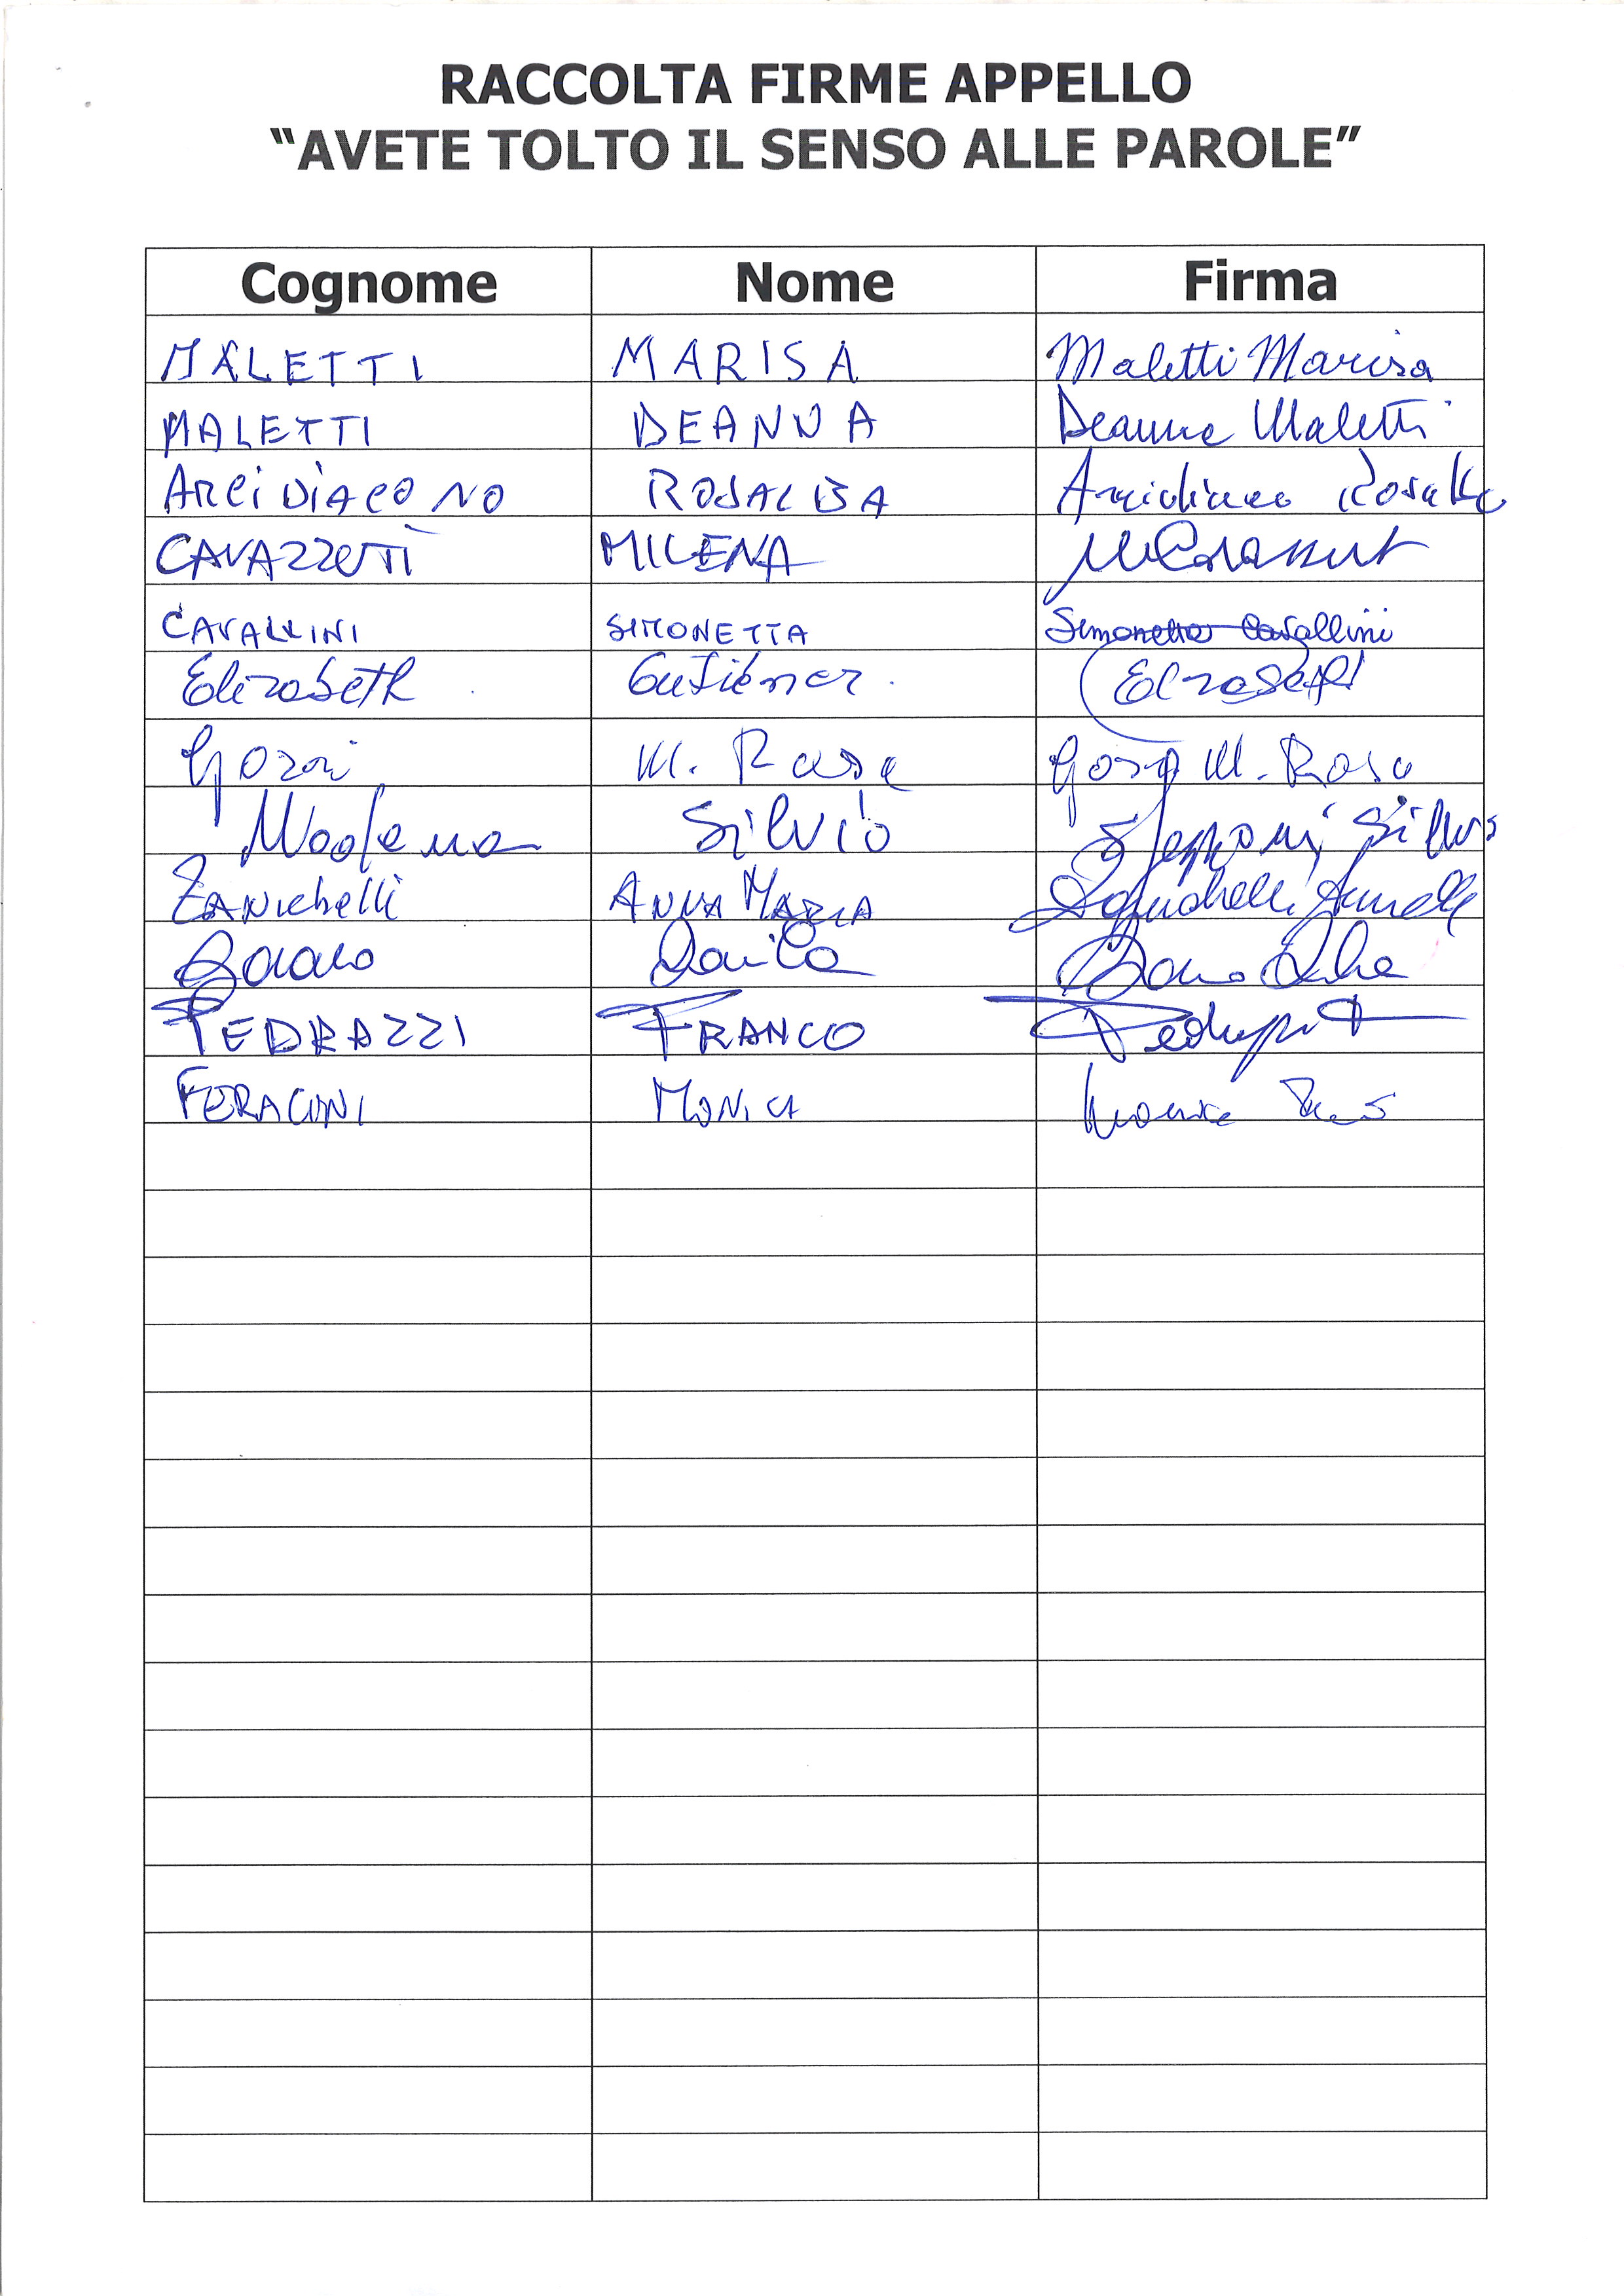 RACCOLTA FIRME APPELLO
“AVETE TOLTO IL SENSO ALLE PAROLE”
Cognome Nome Firma
MALETTI MARISA Maletti Marisa
MALETTI DEANNA Deanna Maletti
ARCIDIACONO ROSALBA Arcidiacono Rosalba
CAVAZZUTI MILENA
CAVALLINI SIMONETTA Simonetta Cavallini
Elizabeth Elizabeth
Gozzi M. Rosa M. Rosa
Modena Silvio Silvio
ZANICHELLI ANNA MARIA Zanichelli
PEDRAZZI FRANCO
MONICA Monica